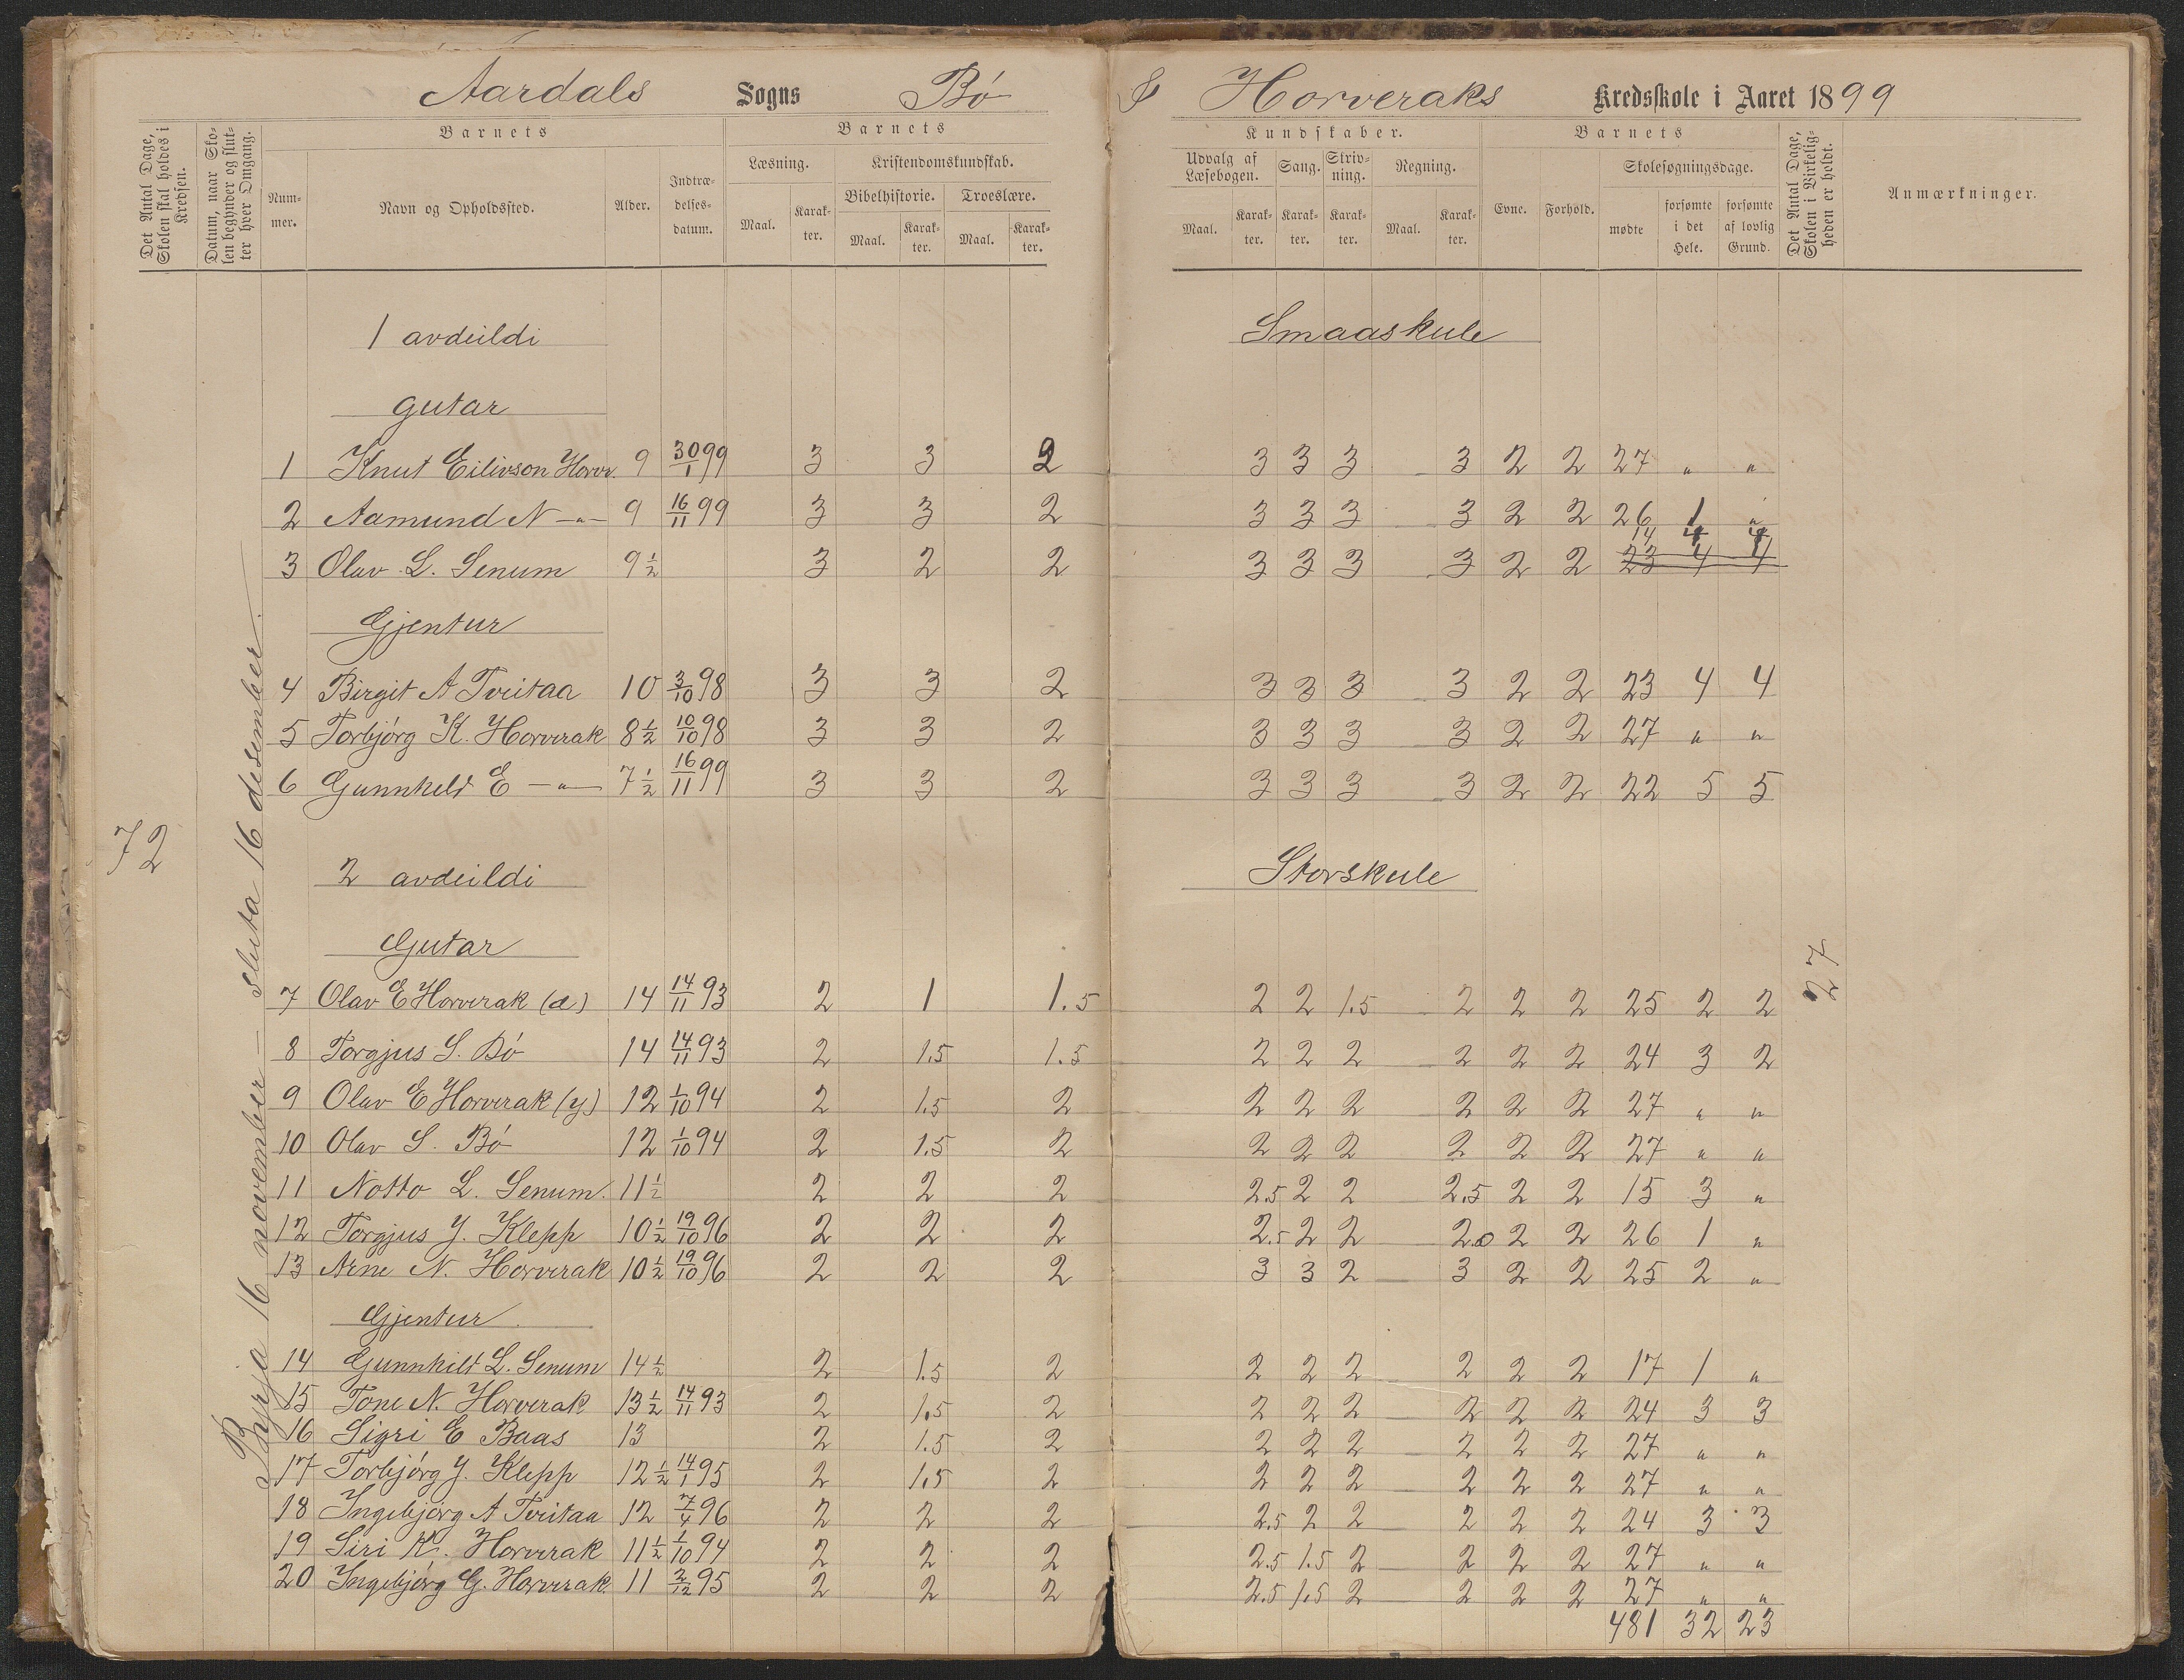 Aardals Sogns Bö & Horveraks Kredsskole i Aaret 1899
Det Antal Dage, Skolen skal holdes i Kredsen.
Datum, naar Skolen begynder og slutter hver Omgang.
Barnets
Nummer.
Navn og Opholdssted.
Alder.
Indtrædelsesdatum.
Barnets
Læsning.
Maal.
Karakter.
Kristendomskundskab.
Bibelhistorie.
Maal.
Karakter.
Troeslære.
Maal.
Karakter.
Kundskaber.
Udvalg af Læsebogen.
Maal.
Karakter.
Sang.
Karakter.
Skrivning.
Karakter.
Regning.
Maal.
Karakter.
Barnets
Evne.
Forhold.
Skolesøgningsdage.
mødte
forsømte i det Hele.
forsømte af lovlig Grund.
Det Antal Dage, Skolen i Virkeligheden er holdt.
Anmærkninger.
72
Byrja 16 november – sluta 16 desember.
1 avdeildi Smaaskule
gutar
1 Knut Eilivson Horv. 9 30/1 99 3 3 2 3 3 3 3 2 2 27 " "
2 Aamund N –"– 9 16/11 99 3 3 2 3 3 3 3 2 2 26 1 "
14 4 4
3 Olav L. Senum 9 1/2 3 2 2 3 3 3 3 2 2 23 4 4
Gjentur
4 Birgit A Tveitaa 10 3/10 98 3 3 2 3 3 3 3 2 2 23 4 4
5 Torbjörg K. Horverak 8 1/2 10/10 98 3 3 2 3 3 3 3 2 2 27 " "
6 Gunnhild E –"– 7 1/2 16/11 99 3 3 2 3 3 3 3 2 2 22 5 5
2 avdeildi Storskule
Gutar
27
7 Olav E Horverak (d) 14 14/11 93 2 1 1.5 2 2 1.5 2 2 2 25 2 2
8 Torgjus S. Bö 14 14/11 93 2 1.5 1.5 2 2 2 2 2 2 24 3 2
9 Olav E Horverak (y) 12 1/10 94 2 1.5 2 2 2 2 2 2 2 27 " "
10 Olav S. Bö 12 1/10 94 2 1.5 2 2 2 2 2 2 2 27 " "
11 Notto L. Senum. 11 1/2 2 2 2 2.5 2 2 2.5 2 2 15 3 "
12 Torgjus Y. Klepp 10 1/2 19/10 96 2 2 2 2.5 2 2 2.0 2 2 26 1 "
13 Arne N. Horverak 10 1/2 19/10 96 2 2 2 3 3 2 3 2 2 25 2 "
Gjentur
14 Gunnhild L. Senum 14 1/2 2 1.5 2 2 2 2 2 2 2 17 1 "
15 Tone N. Horverak 13 1/2 14/11 93 2 1.5 2 2 2 2 2 2 2 24 3 3
16 Sigri E Baas 13 2 1.5 2 2 2 2 2 2 2 27 " "
17 Torbjörg Y. Klepp 12 1/2 14/1 95 2 1.5 2 2 2 2 2 2 2 27 " "
18 Ingebjörg A Tveitaa 12 7/4 96 2 2 2 2.5 2 2 2 2 2 24 3 3
19 Siri K. Horverak 11 1/2 1/10 94 2 2 2 2.5 1.5 2 2 2 2 27 " "
20 Ingebjörg G. Horverak 11 2/12 95 2 2 2 2.5 1.5 2 2 2 2 27 " "
481 32 23